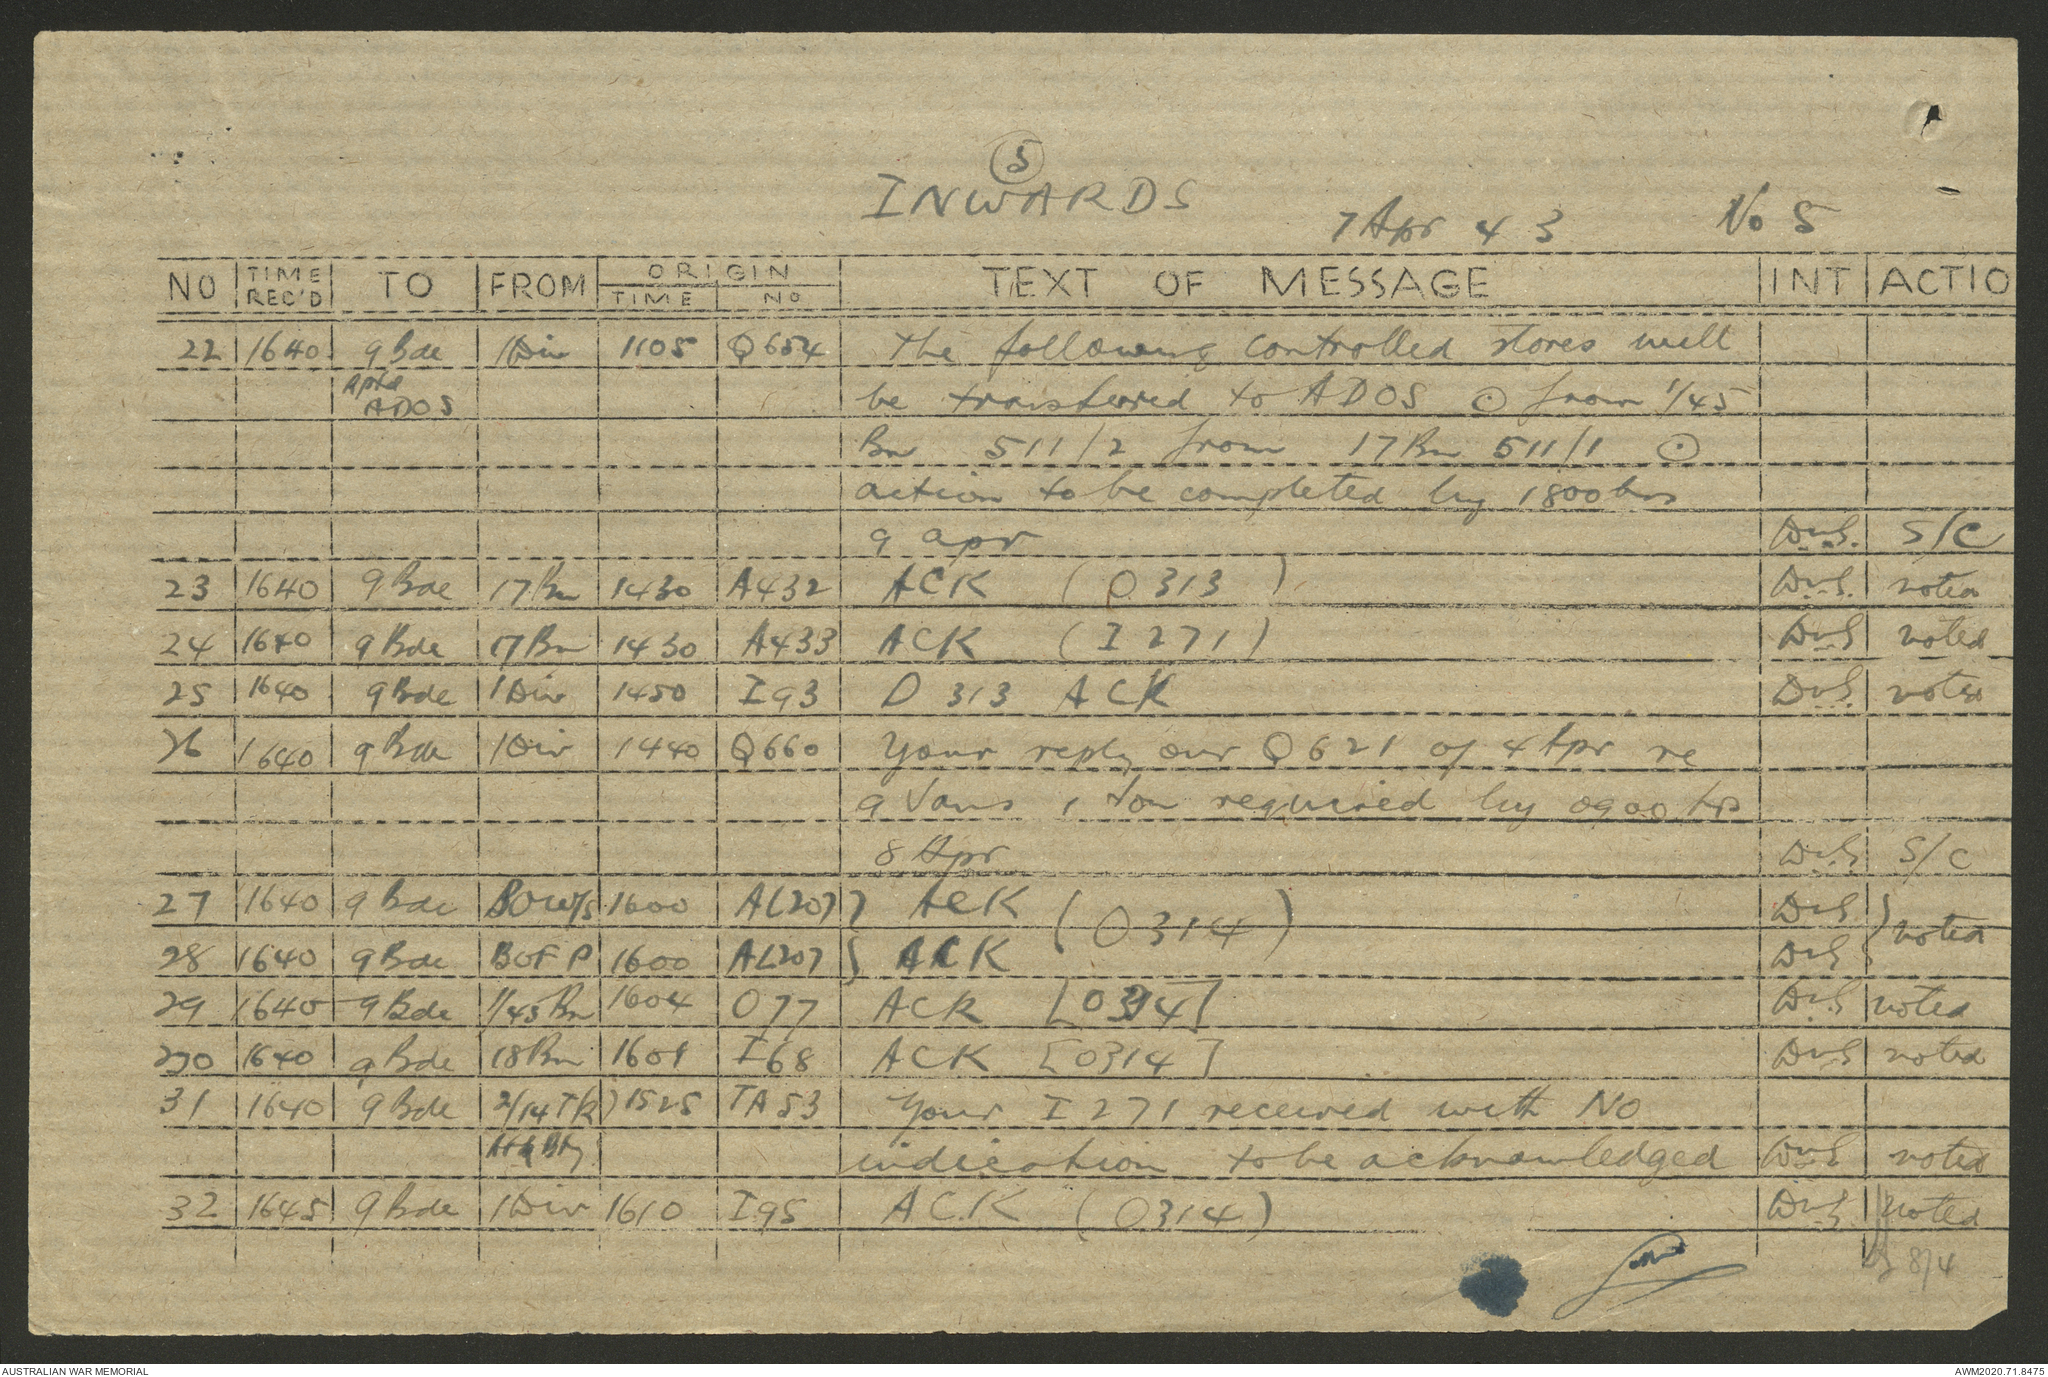 5
INWARDS
7 Apr 43 No 5
NO TIME REC'D TO FROM ORIGIN TIME NO TEXT OF MESSAGE INT ACTIO
22 1640 9 Bde 1 Div 1105 Q654 The following controlled stores will
ADOS be transferred to ADOS ⊙ from 1/45
Bn 511/2 from 17 Bn 511/1 ⊙
action to be completed by 1800 hrs
9 Apr DvS. S/C
23 1640 9 Bde 17 Bn 1430 A432 ACK (O 313) DvS. noted
24 1640 9 Bde 17 Bn 1430 A433 ACK (I 271) DvS noted
25 1640 9 Bde 1 Div 1450 I93 O 313 ACK DvS. noted
26 1640 9 Bde 1 Div 1440 Q660 Your reply our Q 621 of 4 Apr re
9 Vans 1 ton required by 0900 hrs
8 Apr DvS S/C
27 1640 9 Bde 1600 AL207 } ACK (O 314) DvS } noted
28 1640 9 Bde BOFP 1600 AL207 } ACK DvS }
29 1640 9 Bde 1/45 Bn 1604 O77 ACK [O314] DvS noted
30 1640 9 Bde 18 Bn 1609 I68 ACK [O314] DvS noted
31 1640 9 Bde 2/14 1525 TA53 Your I 271 received with NO
indication to be acknowledged DvS noted
32 1645 9 Bde 1 Div 1610 I95 ACK (O314) DvS noted
8/4
AUSTRALIAN WAR MEMORIAL AWM2020.71.8475